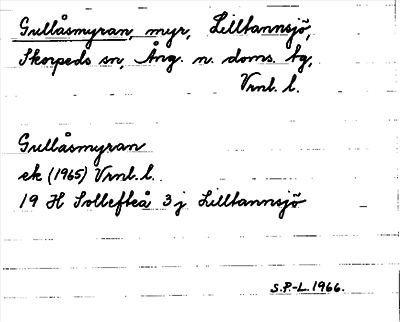 Gullåsmyran, myr, Lilltannsjö,
Skorpeds sn, Ång. n. doms. tg,
Vrnl. l.
Gullåsmyran
ek (1965) Vrnl. l.
19 H Sollefteå 3 j Lilltannsjö
S.P.-L. 1966.